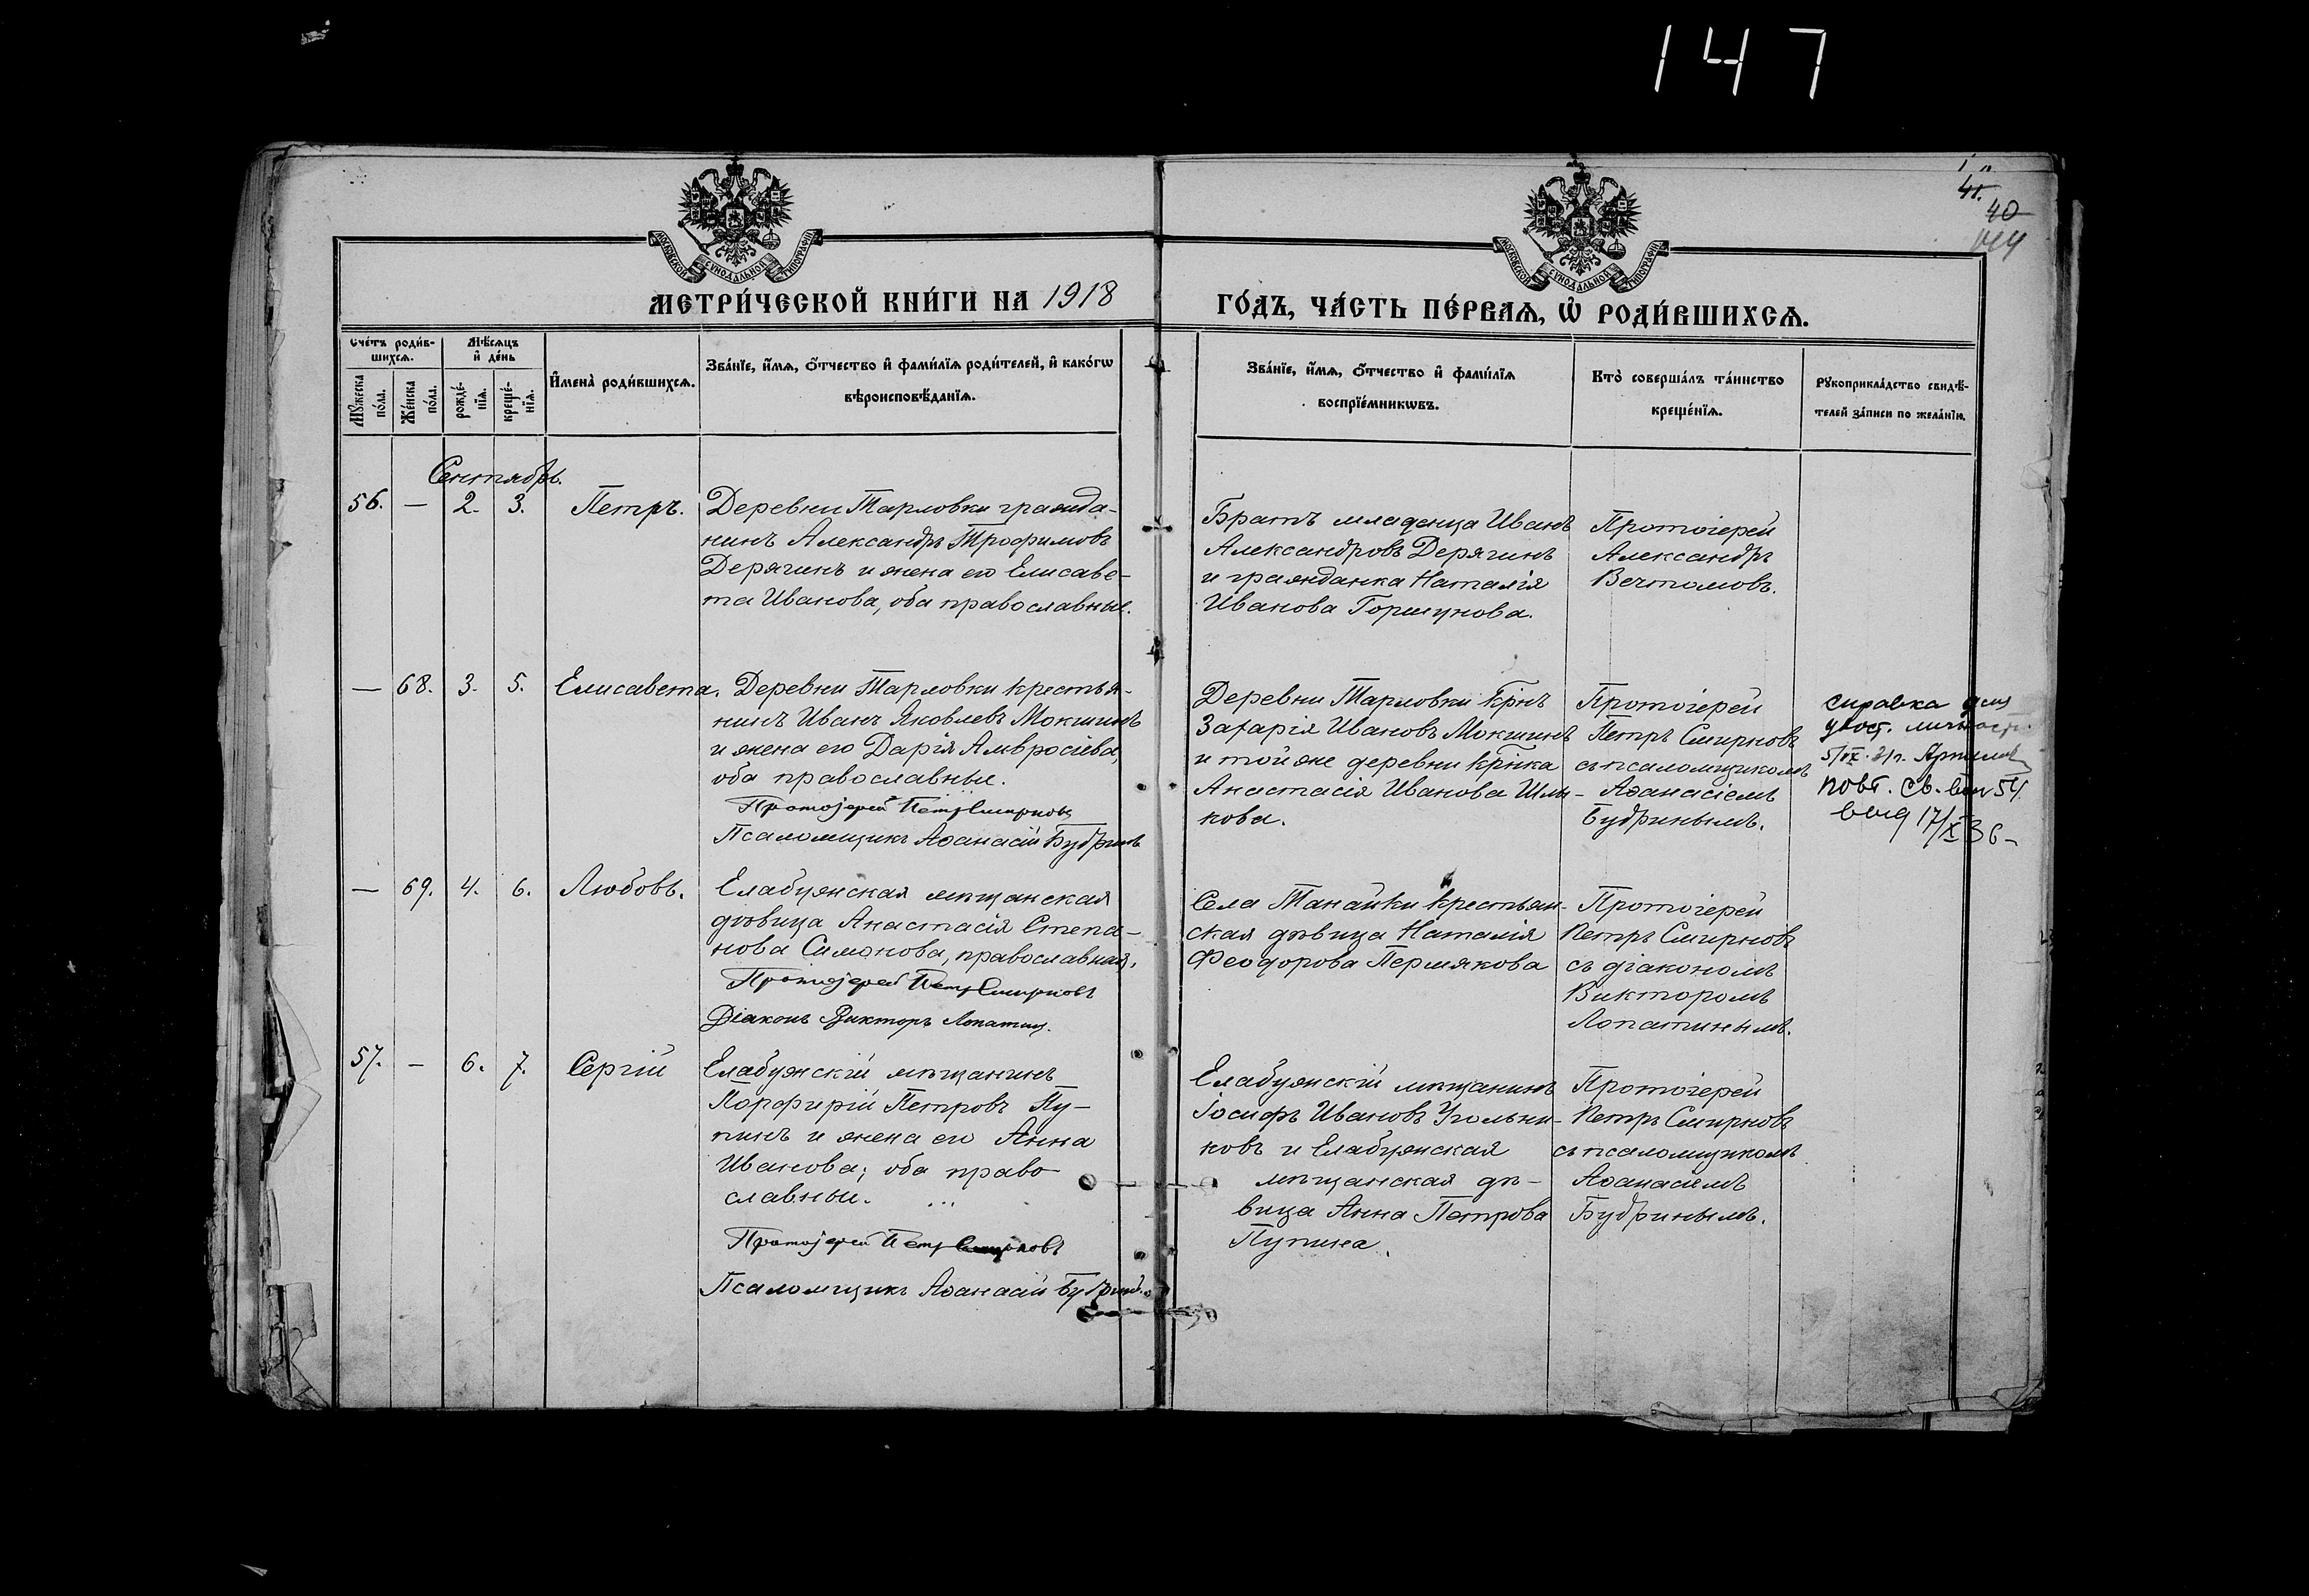 147
41.
40
МОСКОВСКОЙ СУНОДАЛЬНОЙ ТИПОГРАФІИ
МОСКОВСКОЙ СУНОДАЛЬНОЙ ТИПОГРАФІИ
МЕТРИ́ЧЕСКОЙ КНИ́ГИ НА 1918
ГО́ДЪ, ЧА́СТЬ ПЕ́РВАѦ, Ѡ РОДИ́ВШИХСѦ.
Сче́тъ роди́в-
шихсѧ.
Мꙋ́жеска по́ла.
Же́нска по́ла.
Мѣ́сѧцъ
и де́нь
рожде́-
нїѧ.
креще́-
нїѧ.
Имена̀ роди́вшихсѧ.
Зва́нїе, и́мѧ, о́тчество и фами́лїѧ роди́телей, и како́гѡ
вѣроисповѣ́данїѧ.
Зва́нїе, и́мѧ, о́тчество и фами́лїѧ
воспрїе́мникѡвъ.
Кто̀ соверша́лъ та́инство
креще́нїѧ.
Рꙋкоприкла́дство свидѣ́-
телей за́писи по жела́нїю.
Сентябрь.
56. — 2. 3. Петръ.
Деревни Тарловки гражда-
нинъ Александръ Трофимовъ
Дерягинъ и жена его Елисаве-
та Иванова, оба православные.
Братъ младенца Иванъ
Александровъ Дерягинъ
и гражданка Наталія
Иванова Горшунова.
Протоіерей
Александръ
Вечтомовъ.
— 68. 3. 5. Елисавета.
Деревни Тарловки крестья-
нинъ Иванъ Яковлевъ Мокшинъ
и жена его Дарія Амвросіева,
оба православные.
Протоіерей Петръ Смирновъ
Псаломщикъ Аѳанасій Будринъ
Деревни Тарловки крнъ
Захарія Ивановъ Мокшинъ
и той же деревни крнка
Анастасія Иванова Шлы-
кова.
Протоіерей
Петръ Смирновъ
съ псаломщикомъ
Аѳанасіемъ
Будринымъ.
справка для
удост. личности.
повт. св.
выд 17/X 36
— 69. 4. 6. Любовь.
Елабужская мѣщанская
дѣвица Анастасія Степа-
нова Симонова, православная.
Протоіерей Петръ Смирновъ
Діаконъ Викторъ Лопатин.
Села Танайки крестьян-
ская дѣвица Наталія
Феодорова Пермякова
Протоіерей
Петръ Смирновъ
съ діакономъ
Викторомъ
Лопатинымъ.
57. — 6. 7. Сергій
Елабужскій мѣщанинъ
Порфирій Петровъ Пу-
пинъ и жена его Анна
Иванова; оба право
славные.
Протоіерей Петръ Смирновъ
Псаломщикъ Аѳанасій Будринъ.
Елабужскій мѣщанинъ
Іосифъ Ивановъ Угольни-
ковъ и Елабужская
мѣщанская дѣ-
вица Анна Петрова
Пупина.
Протоіерей
Петръ Смирновъ
съ псаломщикомъ
Аѳанасіемъ
Будринымъ.